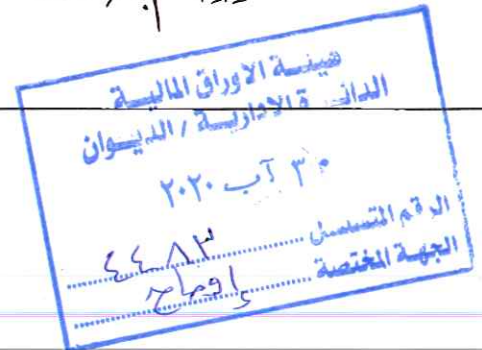 هيئة الاوراق المالية
الدائرة الادارية / الديوان
٣٠ آب ٢٠٢٠
الرقم المتسلسل ٤٤٨٣
الجهة المختصة إفصاح